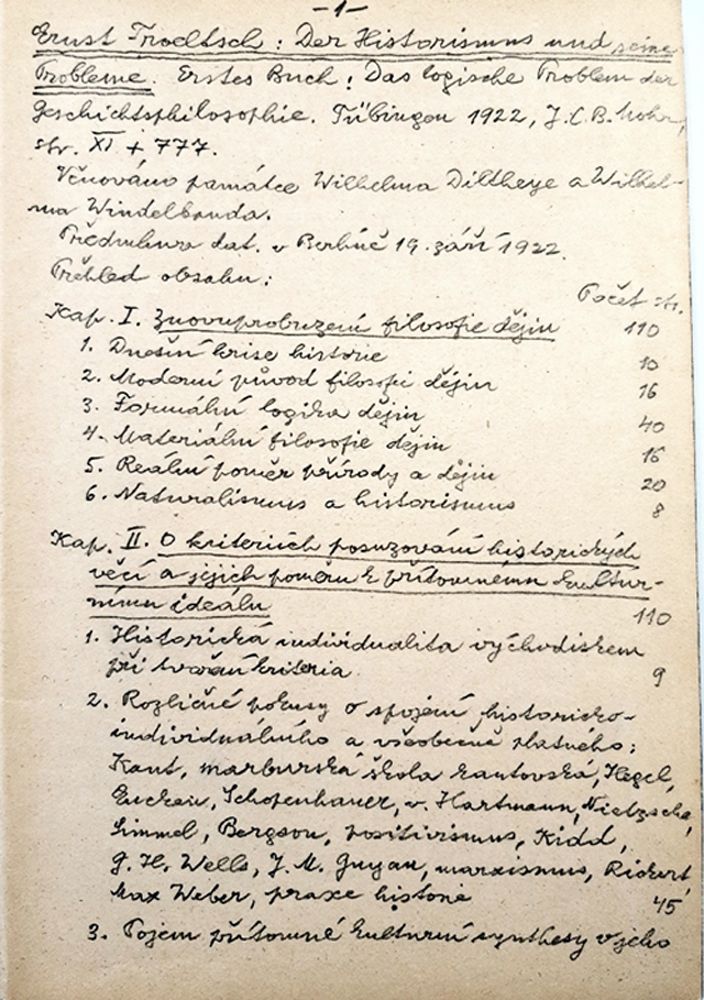 -1-
Ernst Troeltsch: Der Historismus und seine
Probleme. Erstes Buch: Das logische Problem der
Geschichtsphilosophie. Tübingen 1922, J.C.B. Mohr,
str. XI + 777.
Věnováno památce Wilhelma Diltheye a Wilhel-
ma Windelbanda.
Předmluva dat. v Berlíně 19. září 1922.
Přehled obsahu:
Počet str.
Kap. I. Znovuprobuzení filosofie dějin 110
1. Dnešní krise historie 10
2. Moderní původ filosofie dějin 16
3. Formální logika dějin 40
4. Materiální filosofie dějin 16
5. Reální poměr přírody a dějin 20
6. Naturalismus a historismus 8
Kap. II. O kriteriích posuzování historických
věcí a jejich poměru k přítomnému kultur-
nímu ideálu 110
1. Historická individualita východiskem
při tvoření kriteria 9
2. Rozličné pokusy o spojení historicko-
individuálního a všeobecně platného:
Kant, marburská škola kantovská, Hegel,
Eucken, Schopenhauer, v. Hartmann, Nietzsche,
Simmel, Bergson, positivismus, Kidd,
G. H. Wells, J. M. Guyau, marxismus, Rickert,
Max Weber, praxe historie 45
3. Pojem přítomné kulturní synthesy v jeho